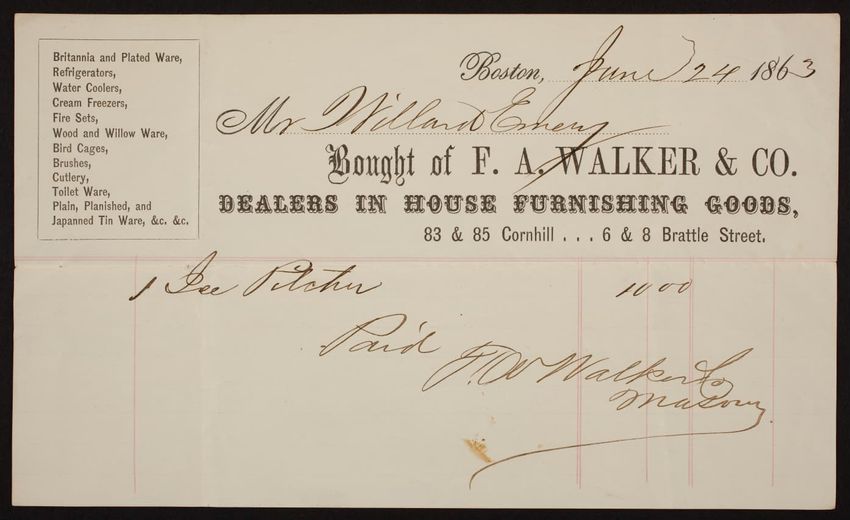 Britannia and Plated Ware,
Refrigerators,
Water Coolers,
Cream Freezers,
Fire Sets,
Wood and Willow Ware,
Bird Cages,
Brushes,
Cutlery,
Toilet Ware,
Plain, Planished, and
Japanned Tin Ware, &c. &c.
Boston, June 24 1863
Mr Willard Emery
Bought of F. A. WALKER & CO.
DEALERS IN HOUSE FURNISHING GOODS,
83 & 85 Cornhill . . . 6 & 8 Brattle Street.
1 Ice Pitcher 10 00
Paid
Walker Co
Mason